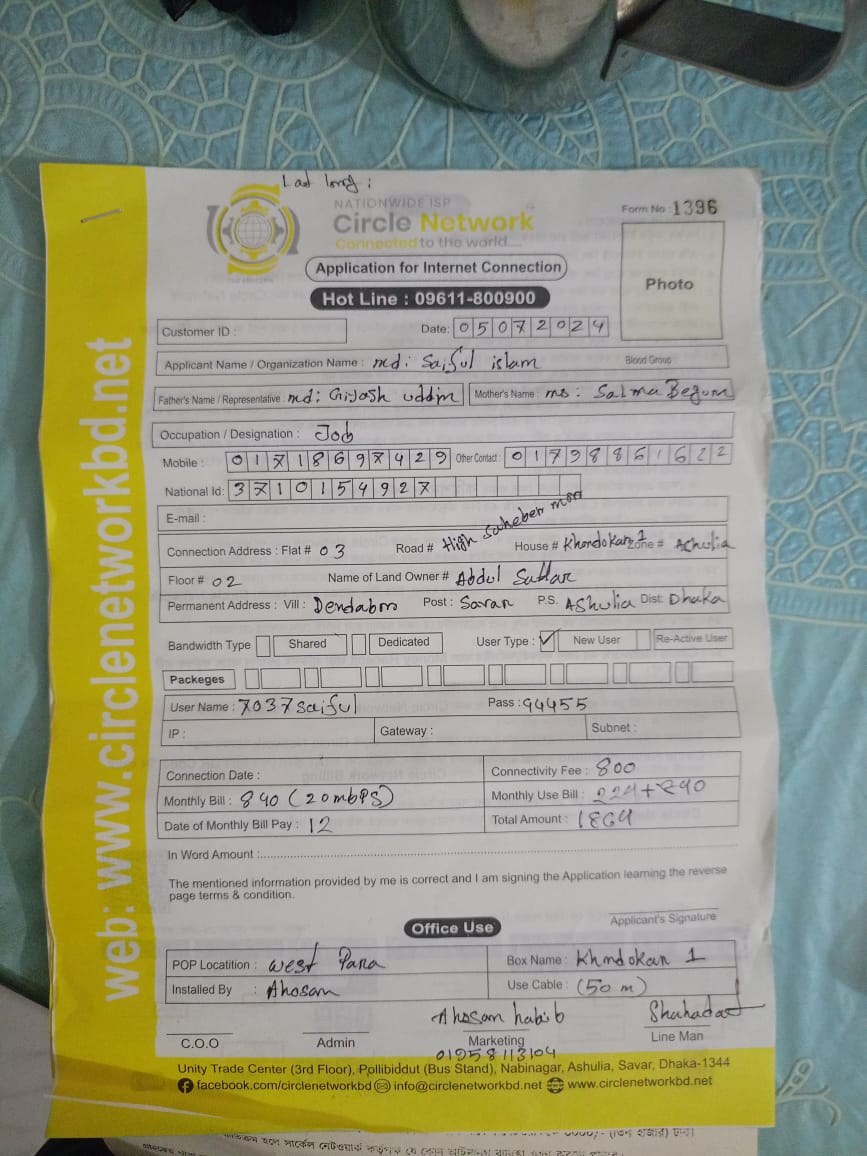 Last long :
NATIONWIDE ISP
Circle Network
Connected to the world....
Form No : 1396
Application for Internet Connection
Photo
Hot Line : 09611-800900
Customer ID :
Date: 05072024
Applicant Name / Organization Name : md: Saiful islam Blood Group
Father's Name / Representative : md: Giyash uddin Mother's Name : ms: Salma Begum
Occupation / Designation : Job
Mobile : 01718697429 Other Contact : 01798861622
National Id: 3710154927
E-mail :
Connection Address : Flat # 03 Road # High Saheber House # Khondokar 1 Zone # Ashulia
Floor # 02 Name of Land Owner # Abdul Suttar
Permanent Address : Vill : Dendabro Post : Savar P.S. Ashulia Dist: Dhaka
Bandwidth Type Shared Dedicated User Type : ✓ New User Re-Active User
Packeges
User Name : 7037saiful Pass : 94455
IP : Gateway : Subnet :
Connection Date : Connectivity Fee : 800
Monthly Bill : 840 (20mbPS) Monthly Use Bill : 224+840
Date of Monthly Bill Pay : 12 Total Amount : 1864
In Word Amount :
The mentioned information provided by me is correct and I am signing the Application learning the reverse
page terms & condition.
Applicant's Signature
Office Use
POP Locatition : West Para Box Name : Khndokar 1
Installed By : Ahosan Use Cable : (50 m)
Ahosan habib Shahadat
C.O.O Admin Marketing Line Man
01958113104
Unity Trade Center (3rd Floor), Pollibiddut (Bus Stand), Nabinagar, Ashulia, Savar, Dhaka-1344
facebook.com/circlenetworkbd info@circlenetworkbd.net www.circlenetworkbd.net
web: www.circlenetworkbd.net